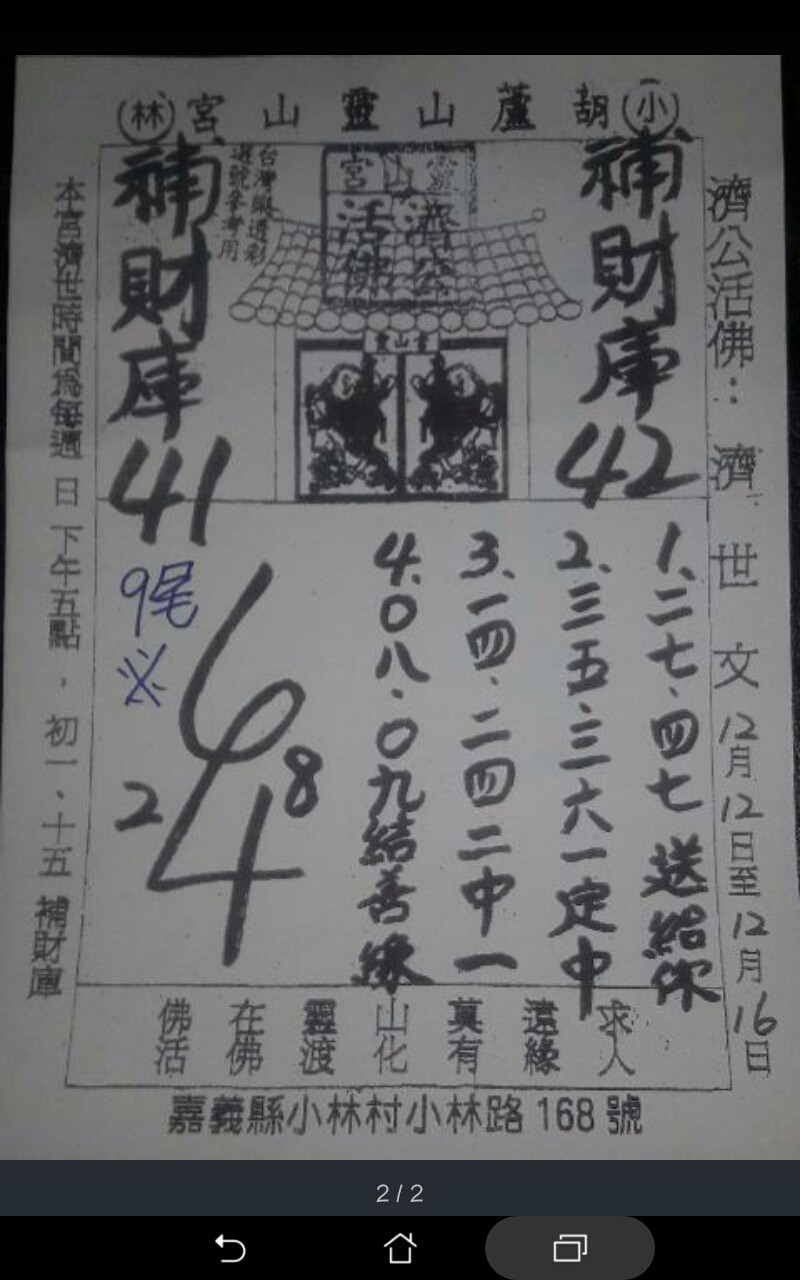 小 胡蘆山靈山宮 林
濟公活佛：濟世文 12月12日至12月16日
補財庫42
靈山宮
濟公
活佛
台灣縱透彩
選號參考用
靈山宮
補財庫41
1、二七、四七 送給你
2、三五、三六一定中
3、一四、二四二中一
4、0八、0九結善緣
9尾
必
6
4
8
2
求人
遠緣
莫有
山化
靈渡
在佛
佛活
本宮濟世時間為每週日下午五點，初一、十五 補財庫
嘉義縣小林村小林路168號
2/2